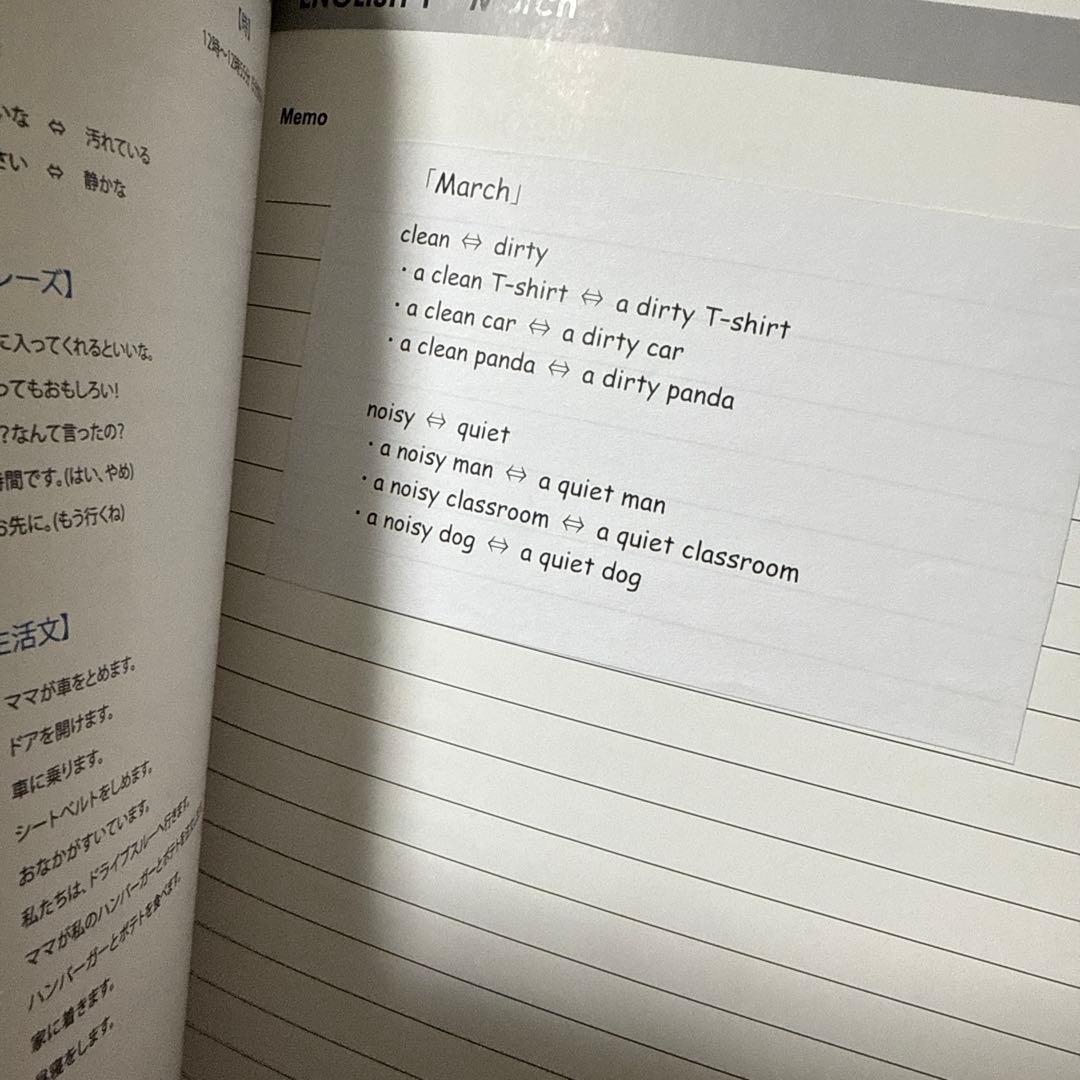 【時】
12時～12時55分
いな ⇔ 汚れている
さい ⇔ 静かな
レーズ】
に入ってくれるといいな。
ってもおもしろい!
?なんて言ったの?
時間です。(はい、やめ)
お先に。(もう行くね)
生活文】
ママが車をとめます。
ドアを開けます。
車に乗ります。
シートベルトをしめます。
おなかがすいています。
私たちは、ドライブスルーへ行きます。
ママが私のハンバーガーとポテトを
ハンバーガーとポテトを食べます。
家に着きます。
昼寝をします。
ENGLISH March
Memo
「March」
clean ⇔ dirty
・a clean T-shirt ⇔ a dirty T-shirt
・a clean car ⇔ a dirty car
・a clean panda ⇔ a dirty panda
noisy ⇔ quiet
・a noisy man ⇔ a quiet man
・a noisy classroom ⇔ a quiet classroom
・a noisy dog ⇔ a quiet dog